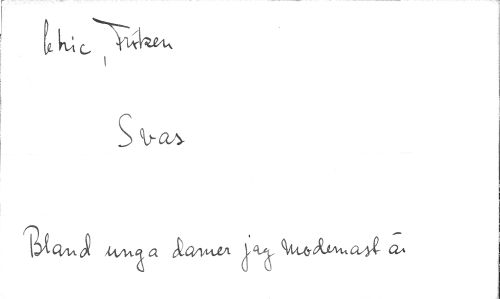 Chic, Fröken
Svas
Bland unga damer jag modernast är